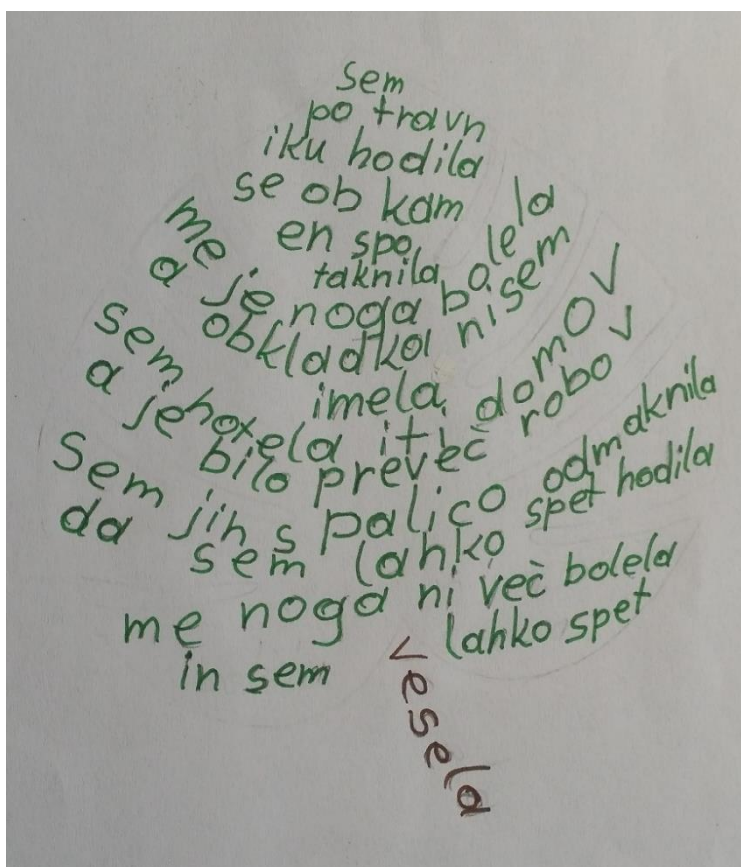 sem
po travn
iku hodila
se ob kam
en spo
taknila
me je noga bolela
a obkladka nisem
imela
sem hotela iti domov
a je bilo preveč robov
sem jih s palico odmaknila
da sem lahko spet hodila
me noga ni več bolela
in sem lahko spet
vesela